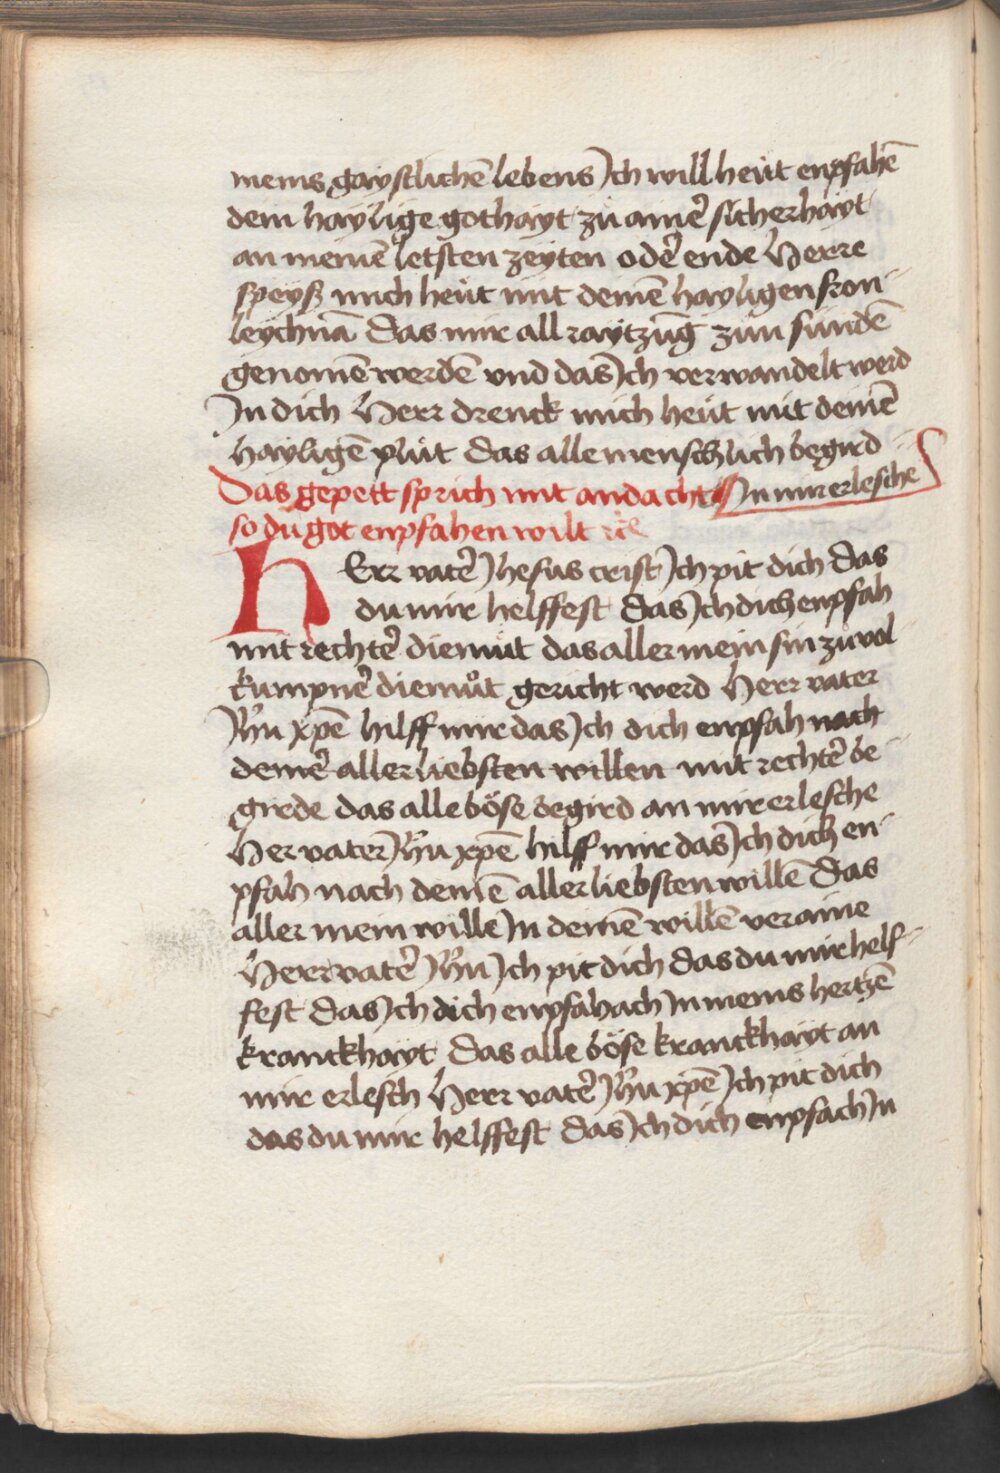 meins gaystlichē lebens Ich will heút enpfahē
dein haylige gothayt zú ainē sicherhayt
an meinē letsten zeyten odē ende Herre
speyß mich heút mit deinē hayligen fron
leychnā Das mir all raytzūg zún súndē
genomē werdē vnd das Ich verwandelt werd
In dich Herr drenck mich heút mit deinē
hayligē plút das alle menschlich begird
Das gepett sprich mit andacht In mir erlesche
so du got enpfahen wilt rc̄
HErr vatē Jhesus crist Ich pit dich das
du mir helffest das Ich dich enpfah
mit rechtē diemút das aller mein sin zú vol
kumpnē diemůt gericht werd Herr vater
Jhū xpē hilff mir das Ich dich enpfah nach
deinē aller liebsten willen mit rechtē be
girde das alle böse begird an mir erlesche
Her vater Jhū xpē hilff mir das Ich dich en
pfah nach deinē aller liebsten willē Das
aller mein wille In deinē willē veraine
Herr vatē Jhū Ich pit dich das du mir helf
fest das Ich dich enpfahach In meins hertzē
kranckhayt das alle böse kranckhayt an
mir erlesch Herr vatē Jhū xpē Ich pit dich
das du mir helffest das Ich dich enpfach In